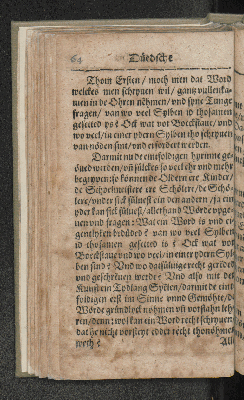 64 Düedsche
Thom Ersten / moch men dat Word
welckes men schryven wil / gantz vullenka-
men in de Ohren nöhmen / und syne Tunge
fragen / van wo veel Sylben id thosamen
gesetted ys? Offt wat vor Boeckstave / und
wo veel / in einer ydern Sylben tho schryven
van nöden sint / und erfordert werden.
Darmit nu de einfoldigen hyrinne ge-
öued werden / und sülckes so veel ehr und mehr
begrypen: so können de Oldern ere Kinder /
de Schoelmeistere ere Schölere / de Schö-
lere / under sick sülvest ein den andern / ja ein
yder kan sick sülvest / allerhand Wörde vpge-
uen und fragen: Wat ein Word is und ei-
gentlyken bedüdet? van wo veel Sylben
id thosamen gesetted is? Offt wat vor
Boeckstave und wo veel / in einer ydern Syl-
ben sind? Und wo datsülvige recht geredet
und geschreven werde? Und also mit der
Kunst ein Tydlang Spelen / darmit de ein-
foldigen erst im Sinne unnd Gemöhte / de
Wörde gründlick nöhmen und vorstahn leh-
ren / denn: wol kan ein Word recht schryven /
dat he nicht vorsteyt edder recht thonöhmen
weth?
All